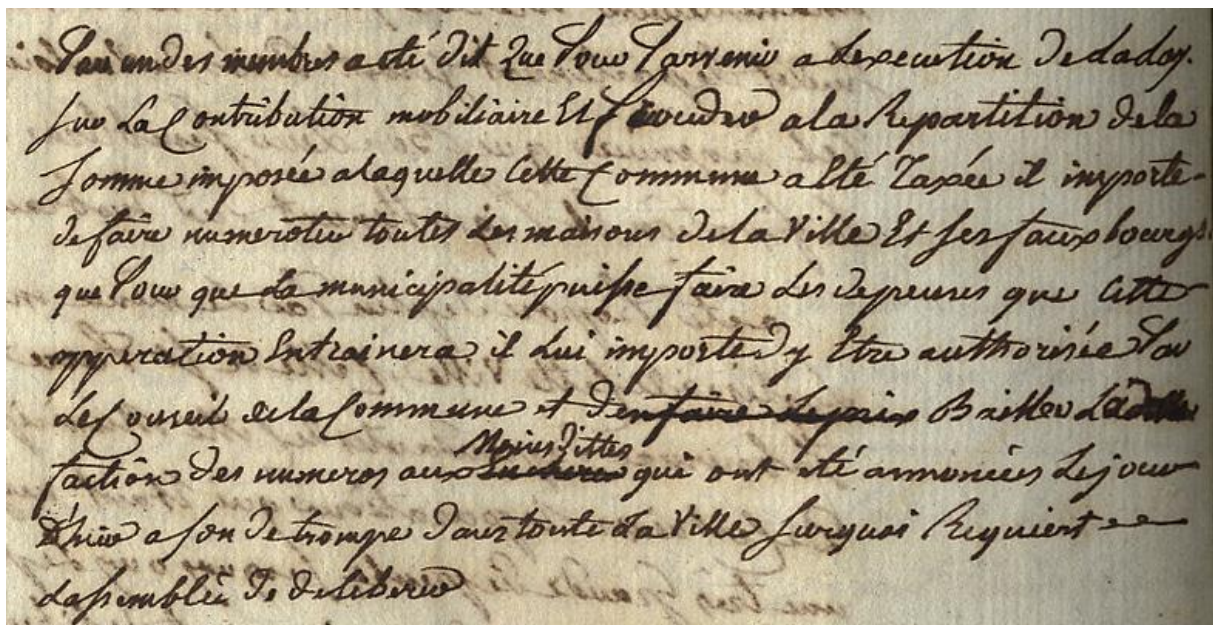 Par un des membres a été dit Que Pour Parvenir a Lexecution De la Loy.
sur La Contribution mobiliaire Et proceder a la Repartition de la
somme imposée a laquelle Cette Commune a Eté Taxée il importe
de faire numeroter toutes Les maisons de la Ville Et ses fauxbourgs
que Pour que La municipalité puisse faire Les depenses que Cette
opperation Entrainera il Lui importe Dy Etre authorisée Par
Le Conseil de la Commune et Den faire Le prix Bailler La
faction des numeros aux Moins Dittes qui ont été annoncées Le jour
Dhier a son de trompe Dans toute La Ville surquoi Requiert
Lassemblée De deliberer